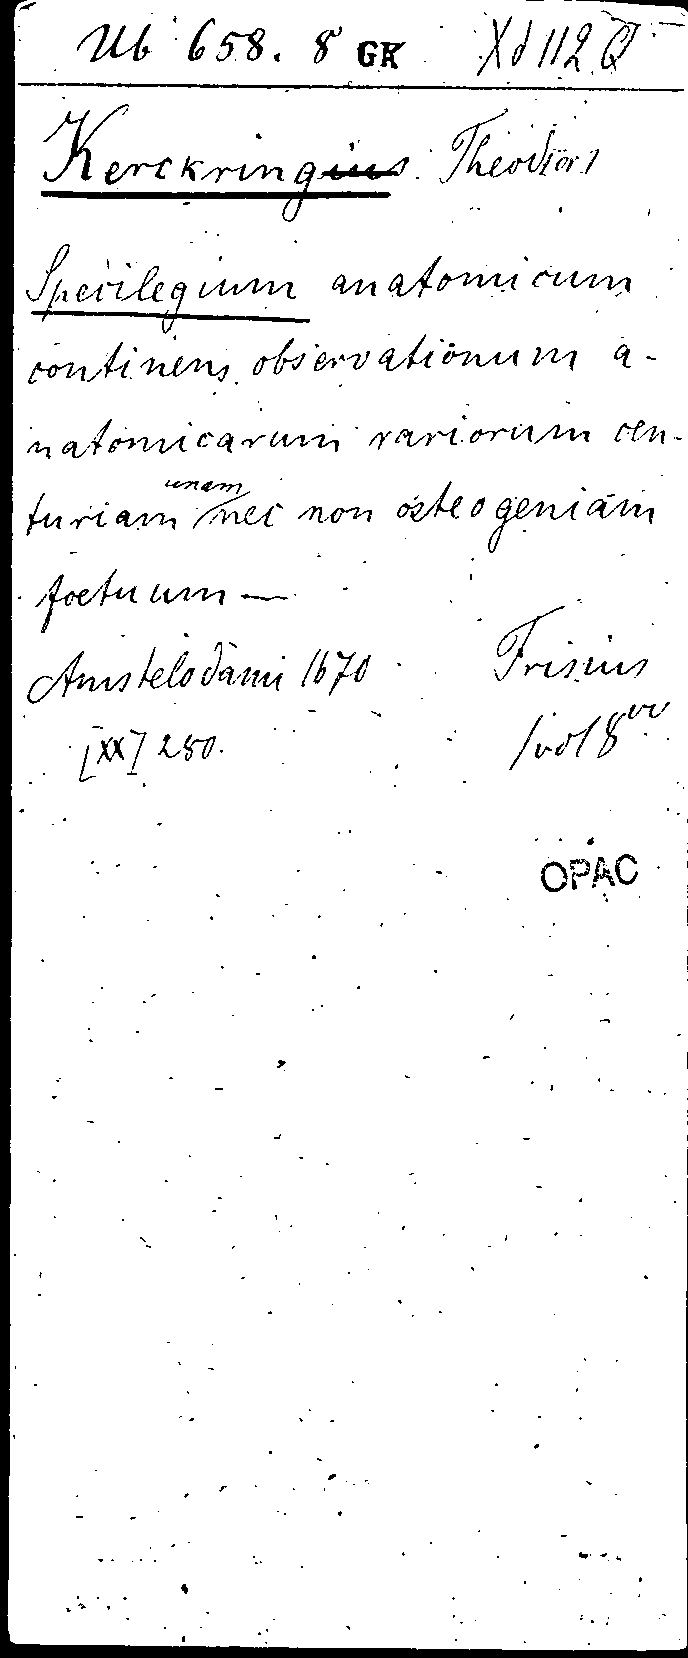 Ub 658. 8 GK Xd 112 Q
Kerckringius. Theodor
Specilegium anatomicum
continens observationum a-
natomicarum rariorum cen-
turiam unam nec non osteogeniam
foetuum —
Amstelodami 1670 Frisius
[XX] 280. 1 vol 8vo
OPAC